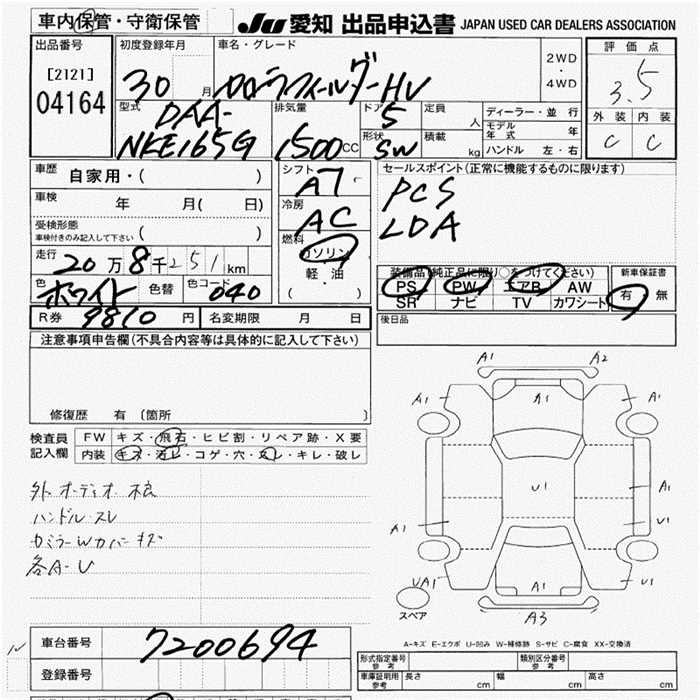 車内保管・守衛保管
JU 愛知 出品申込書 JAPAN USED CAR DEALERS ASSOCIATION
出品番号
[2121]
04164
初度登録年月
30 月
車名・グレード
カローラフィールダーHV
2WD
・
4WD
評価点
3.5
外装 内装
C C
型式
DAA-
NKE165G
排気量
1500CC
ドア
5
形状
SW
定員
人
積載
kg
ディーラー・並行
モデル年式 年
ハンドル 左・右
車歴
自家用・( )
車検
年 月( 日)
受検形態
車検付きのみ記入して下さい ( )
走行
20万8千251km
色
ホワイト
色替
色コード
040
R券 9810 円
名変期限 月 日
シフト
AT
冷房
AC
燃料
ガソリン
軽・油
( ・ )
セールスポイント(正常に機能するものに限ります)
PCS
LDA
装備品(純正品に限り○をつけてください)
PS PW エアB AW
SR ナビ TV カワシート
新車保証書
有・無
後日品
注意事項申告欄(不具合内容等は具体的に記入して下さい)
修復歴 有 〔箇所 〕
検査員
記入欄
FW キズ・飛石・ヒビ割・リペア跡・X要
内装 キズ・汚レ・コゲ・穴・スレ・キレ・破レ
外オーディオ不良
ハンドルスレ
カミラーWカバーキズ
各A-U
A1 A2
A1 A1 A1
U1 A1
A1 U1
UA1 A1 U1
A3
スペア
A-キズ E-エクボ U-凹み W-補修跡 S-サビ C-腐食 XX-交換済
車台番号
7200694
登録番号
形式指定番号
参考
類別区分番号
参考
車庫証明用
参考
長さ cm 幅 cm 高さ cm